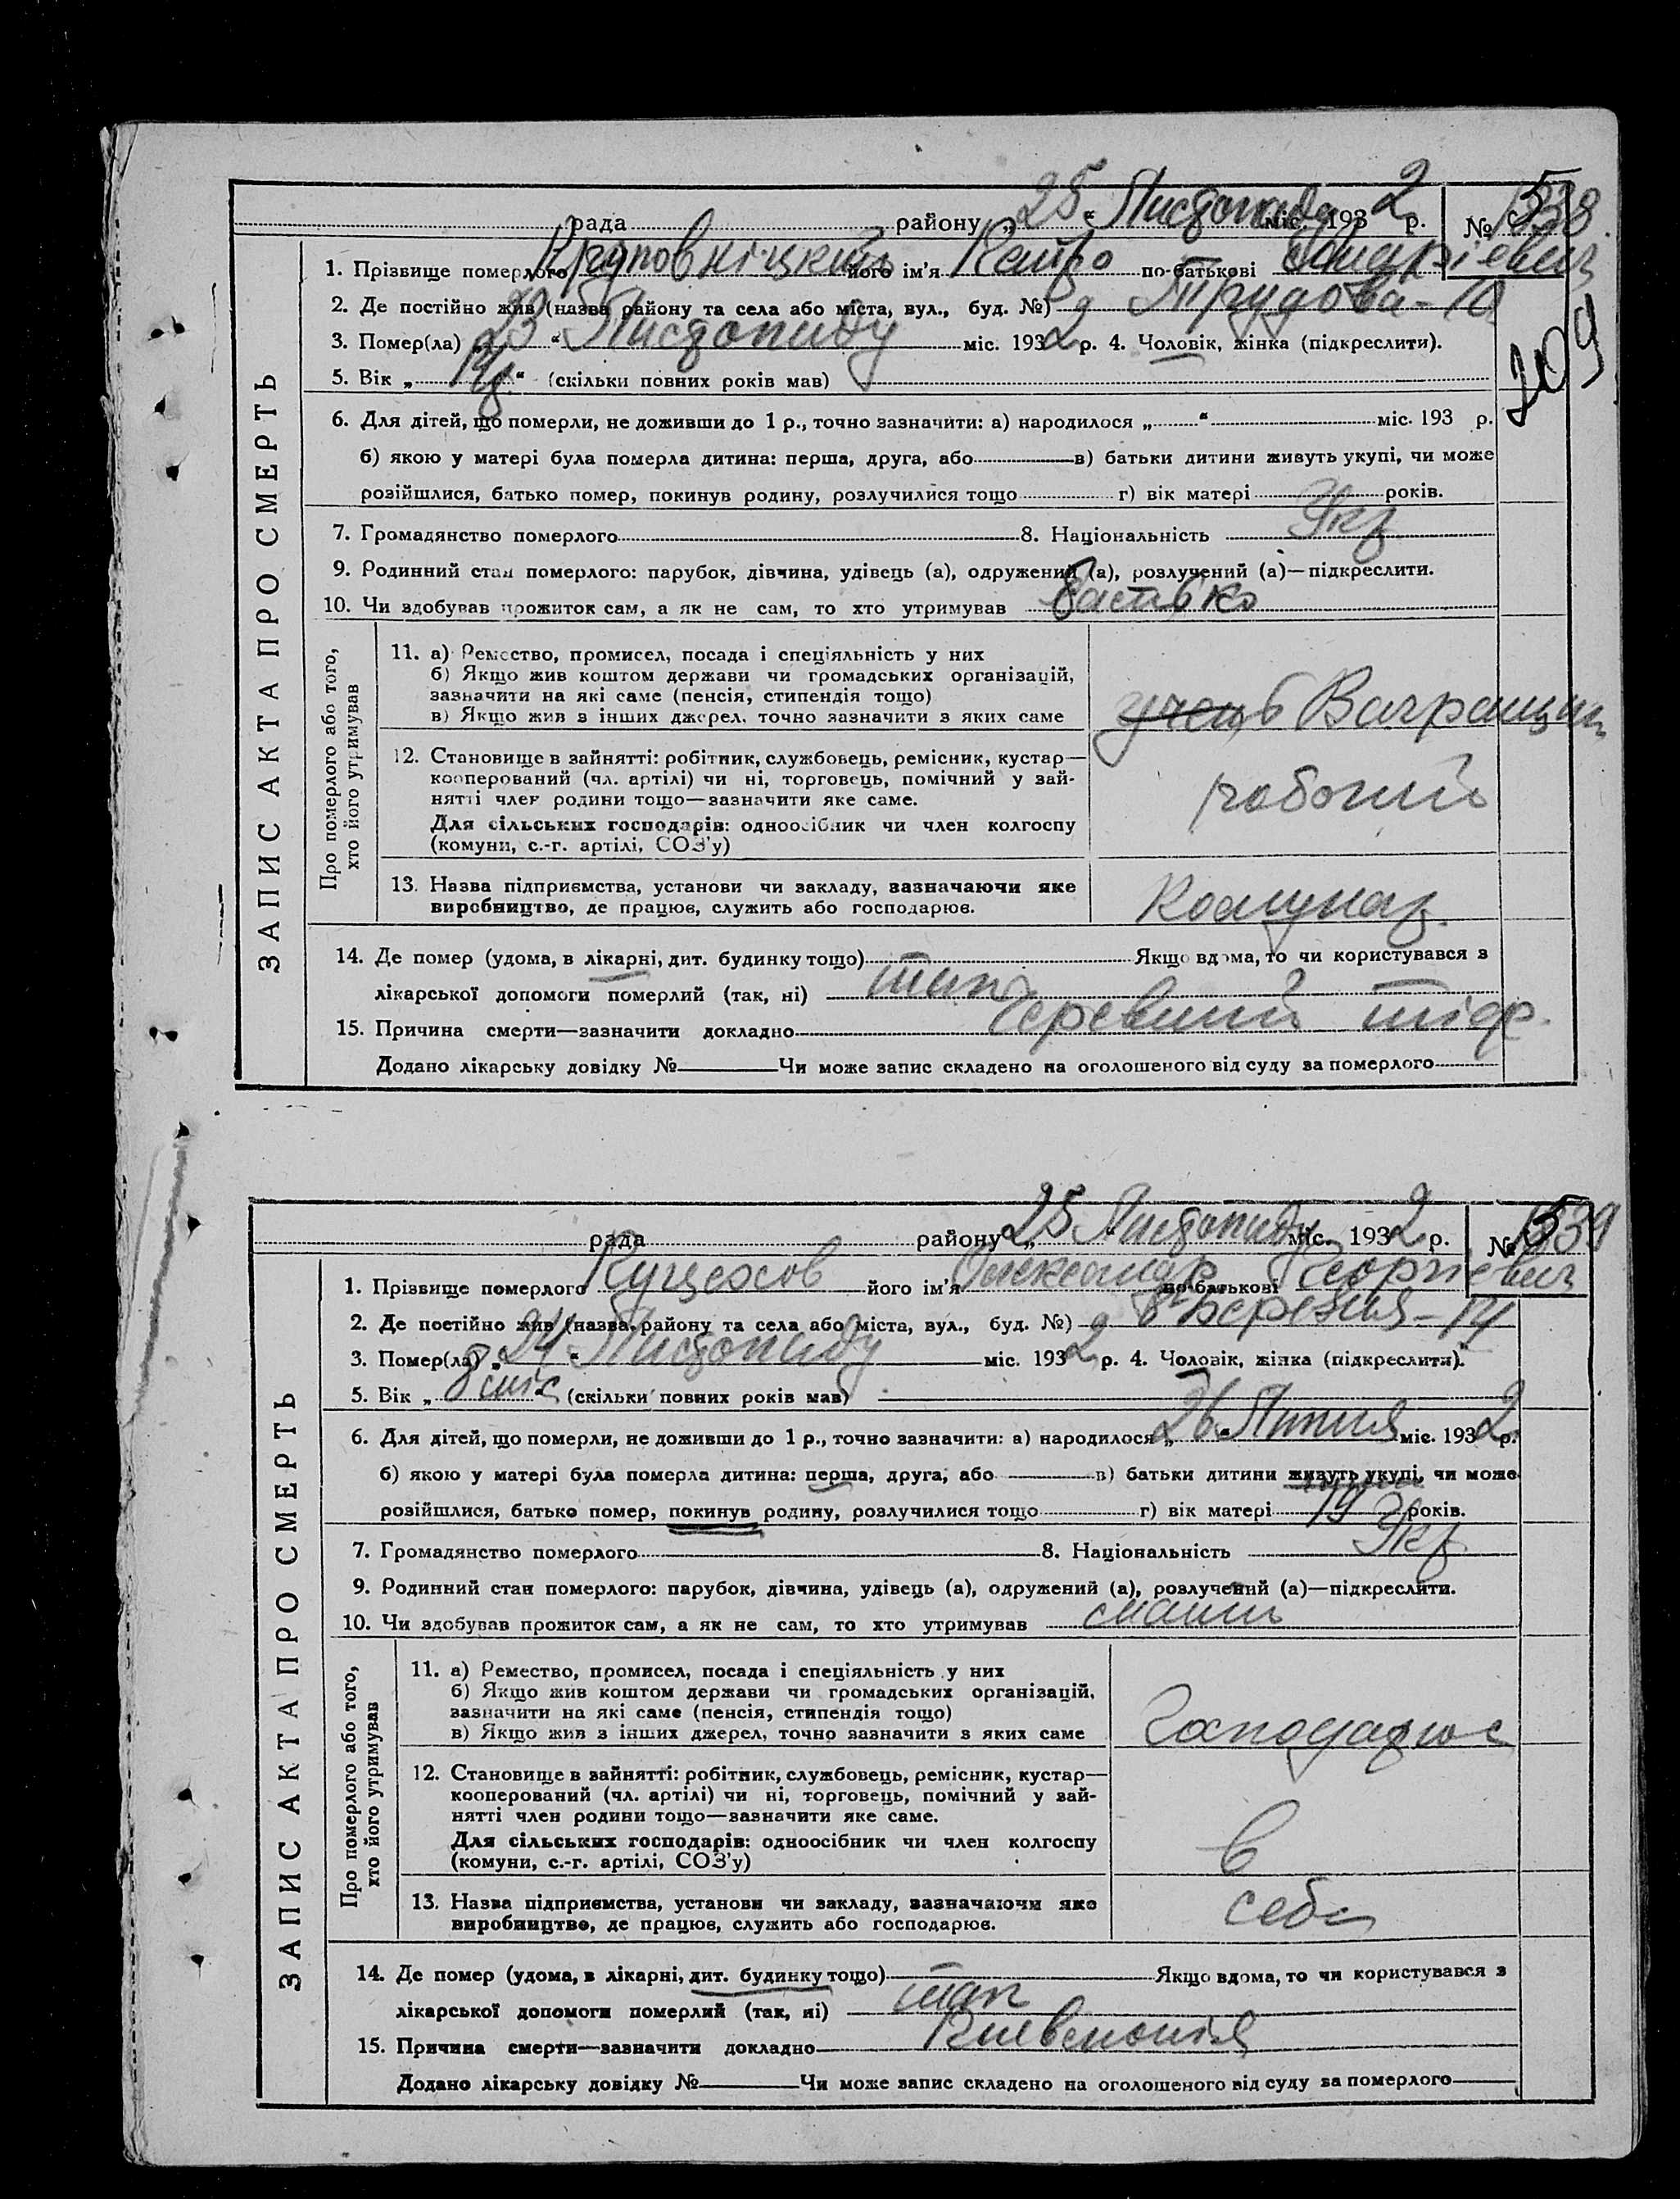 ЗАПИС АКТА ПРО СМЕРТЬ
рада району „25“ Листопада міс. 1932 р. № 538
1. Прізвище померлого його ім'я по-батькові
2. Де постійно жив (назва району та села або міста, вул., буд. №) Трудова-10
3. Помер(ла) „23“ Листопаду міс. 1932 р. 4. Чоловік, жінка (підкреслити).
5. Вік „ “ (скільки повних років мав)
6. Для дітей, що померли, не доживши до 1 р., точно зазначити: а) народилося „ “ міс. 193 р.
б) якою у матері була померла дитина: перша, друга, або в) батьки дитини живуть укупі, чи може
розійшлися, батько помер, покинув родину, розлучилися тощо г) вік матері років.
7. Громадянство померлого 8. Національність Укр
9. Родинний стан померлого: парубок, дівчина, удівець (а), одружений (а), розлучений (а)—підкреслити.
10. Чи здобував прожиток сам, а як не сам, то хто утримував батько
Про померлого або того, хто його утримував
11. а) Ремество, промисел, посада і спеціяльність у них
б) Якщо жив коштом держави чи громадських організацій,
зазначити на які саме (пенсія, стипендія тощо)
в) Якщо жив з інших джерел, точно зазначити з яких саме
учень Вагранщик
12. Становище в зайнятті: робітник, службовець, ремісник, кустар—
кооперований (чл. артілі) чи ні, торговець, помічний у зай-
нятті член родини тощо—зазначити яке саме.
Для сільських господарів: одноосібник чи член колгоспу
(комуни, с.-г. артілі, СОЗ'у)
робочий
13. Назва підприємства, установи чи закладу, зазначаючи яке
виробництво, де працює, служить або господарює.
Комунар
14. Де помер (удома, в лікарні, дит. будинку тощо) Якщо вдома, то чи користувався з
лікарської допомоги померлий (так, ні) так
15. Причина смерти—зазначити докладно Черевний тіф.
Додано лікарську довідку № Чи може запис складено на оголошеного від суду за померлого
ЗАПИС АКТА ПРО СМЕРТЬ
рада району „25“ Листопаду міс. 1932 р. № 539
1. Прізвище померлого його ім'я Олександр по-батькові Георгієвич
2. Де постійно жив (назва району та села або міста, вул., буд. №) 8 Березня-14
3. Помер(ла) „24“ Листопаду міс. 1932 р. 4. Чоловік, жінка (підкреслити).
5. Вік „ міс “ (скільки повних років мав)
6. Для дітей, що померли, не доживши до 1 р., точно зазначити: а) народилося „26“ Липня міс. 1932 р.
б) якою у матері була померла дитина: перша, друга, або в) батьки дитини живуть укупі, чи може
розійшлися, батько помер, покинув родину, розлучилися тощо г) вік матері 19 років.
7. Громадянство померлого 8. Національність Укр
9. Родинний стан померлого: парубок, дівчина, удівець (а), одружений (а), розлучений (а)—підкреслити.
10. Чи здобував прожиток сам, а як не сам, то хто утримував мати
Про померлого або того, хто його утримував
11. а) Ремество, промисел, посада і спеціяльність у них
б) Якщо жив коштом держави чи громадських організацій,
зазначити на які саме (пенсія, стипендія тощо)
в) Якщо жив з інших джерел, точно зазначити з яких саме
господарює
12. Становище в зайнятті: робітник, службовець, ремісник, кустар—
кооперований (чл. артілі) чи ні, торговець, помічний у зай-
нятті член родини тощо—зазначити яке саме.
Для сільських господарів: одноосібник чи член колгоспу
(комуни, с.-г. артілі, СОЗ'у)
в
13. Назва підприємства, установи чи закладу, зазначаючи яке
виробництво, де працює, служить або господарює.
себе
14. Де помер (удома, в лікарні, дит. будинку тощо) Якщо вдома, то чи користувався з
лікарської допомоги померлий (так, ні) так
15. Причина смерти—зазначити докладно Пневмонія
Додано лікарську довідку № Чи може запис складено на оголошеного від суду за померлого